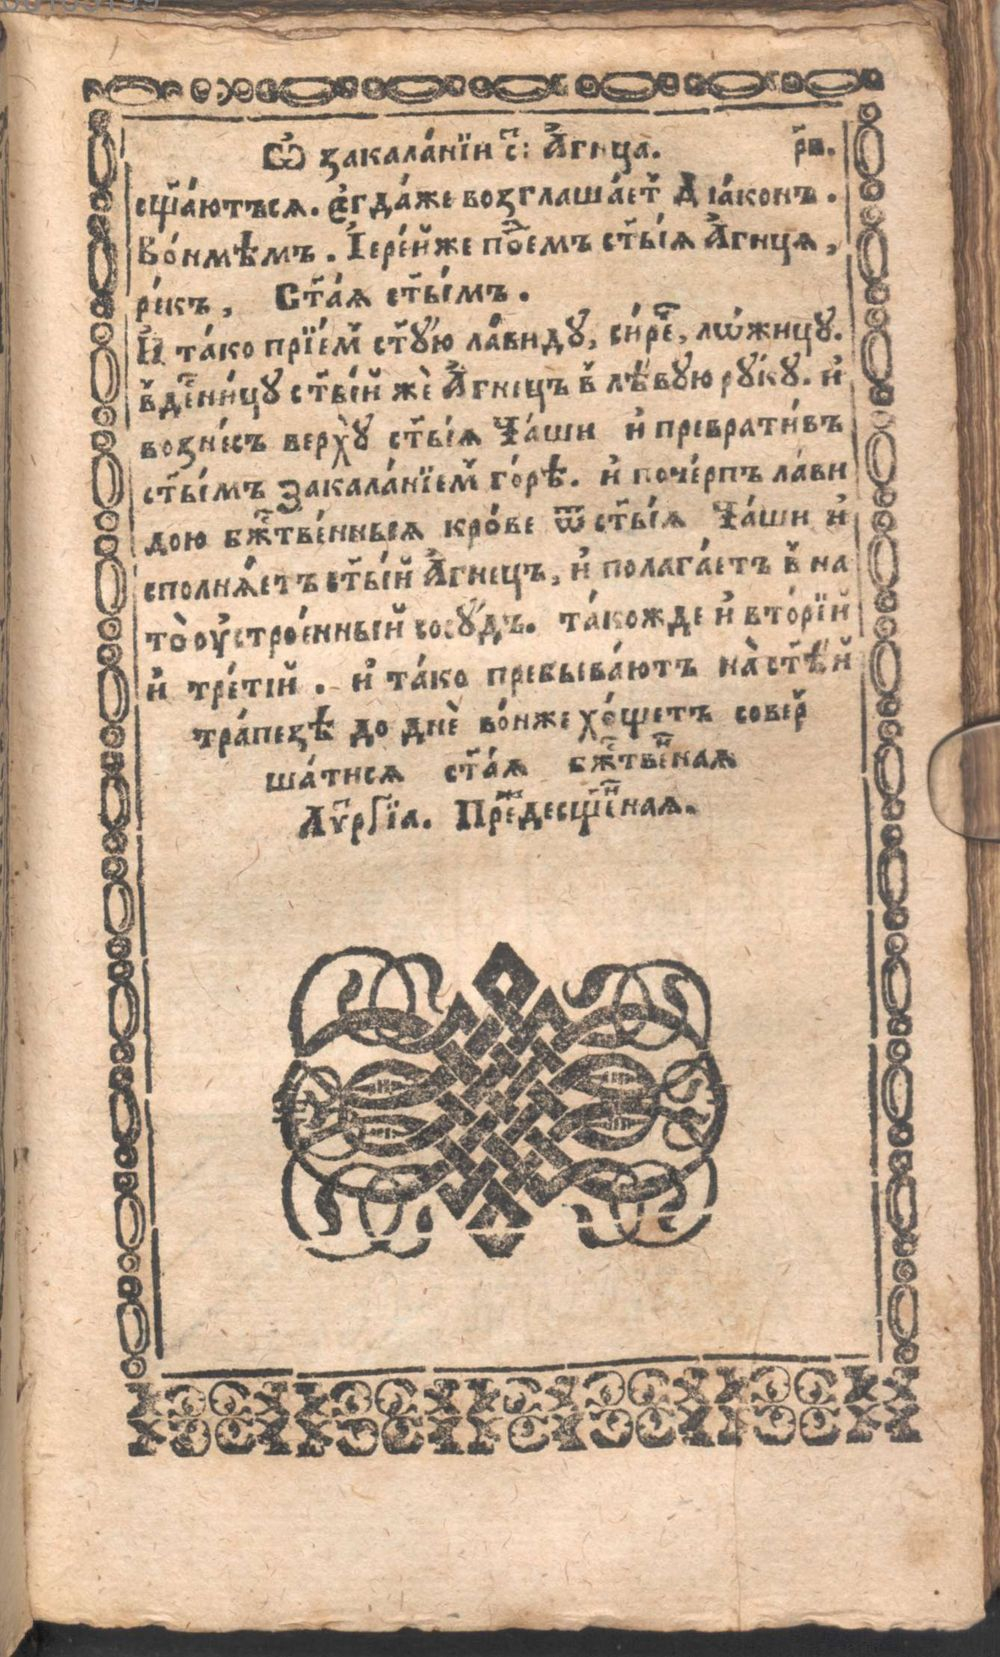 Ѡ҆ закала́нїи с҃: А҆́гнца. р҃в.
сщ҃а́ютъсѧ. Є҆гда́же возглаша́ет̾ Дїа́конъ.
Во́нмѣмъ. І҆ере́йже по́емъ ст҃ы́ѧ А҆́гнцѧ,
ре́къ, Ст҃а́ѧ ст҃ы́мъ.
И҆ та́ко прїе́м̾ ст҃ꙋ́ю ла́видꙋ, си́реⷱ҇, лѡ́жицꙋ.
в̾ десни́цꙋ ст҃ы́й жѐ А҆́гнецъ в̾ лѣ́вꙋю рꙋ́кꙋ. и҆
вознє́съ верхꙋ̀ ст҃ы́ѧ Ча́ши и҆ преврати́въ
ст҃ы́мъ закала́нїем̾ го́рѣ. и҆ поче́рпъ ла́ви
дою бж҃тве́нныѧ кро́ве ѿ ст҃ы́ѧ Ча́ши и҆
сполнѧ́етъ ст҃ы́й А҆́гнецъ, и҆ полага́етъ в̾ на
то̀ ᲂу҆строе́нный сосꙋ́дъ. та́кожде и҆ вто́рїй
и҆ тре́тїй. и҆ та́ко пребыва́ютъ на̀ ст҃ѣ́й
тра́пезѣ до днѐ во́нже хо́щетъ совер̾
ша́тисѧ ст҃а́ѧ бж҃тве́наѧ
Лѵⷮ҇рГїа. Преⷤдесщ҃е́наѧ.